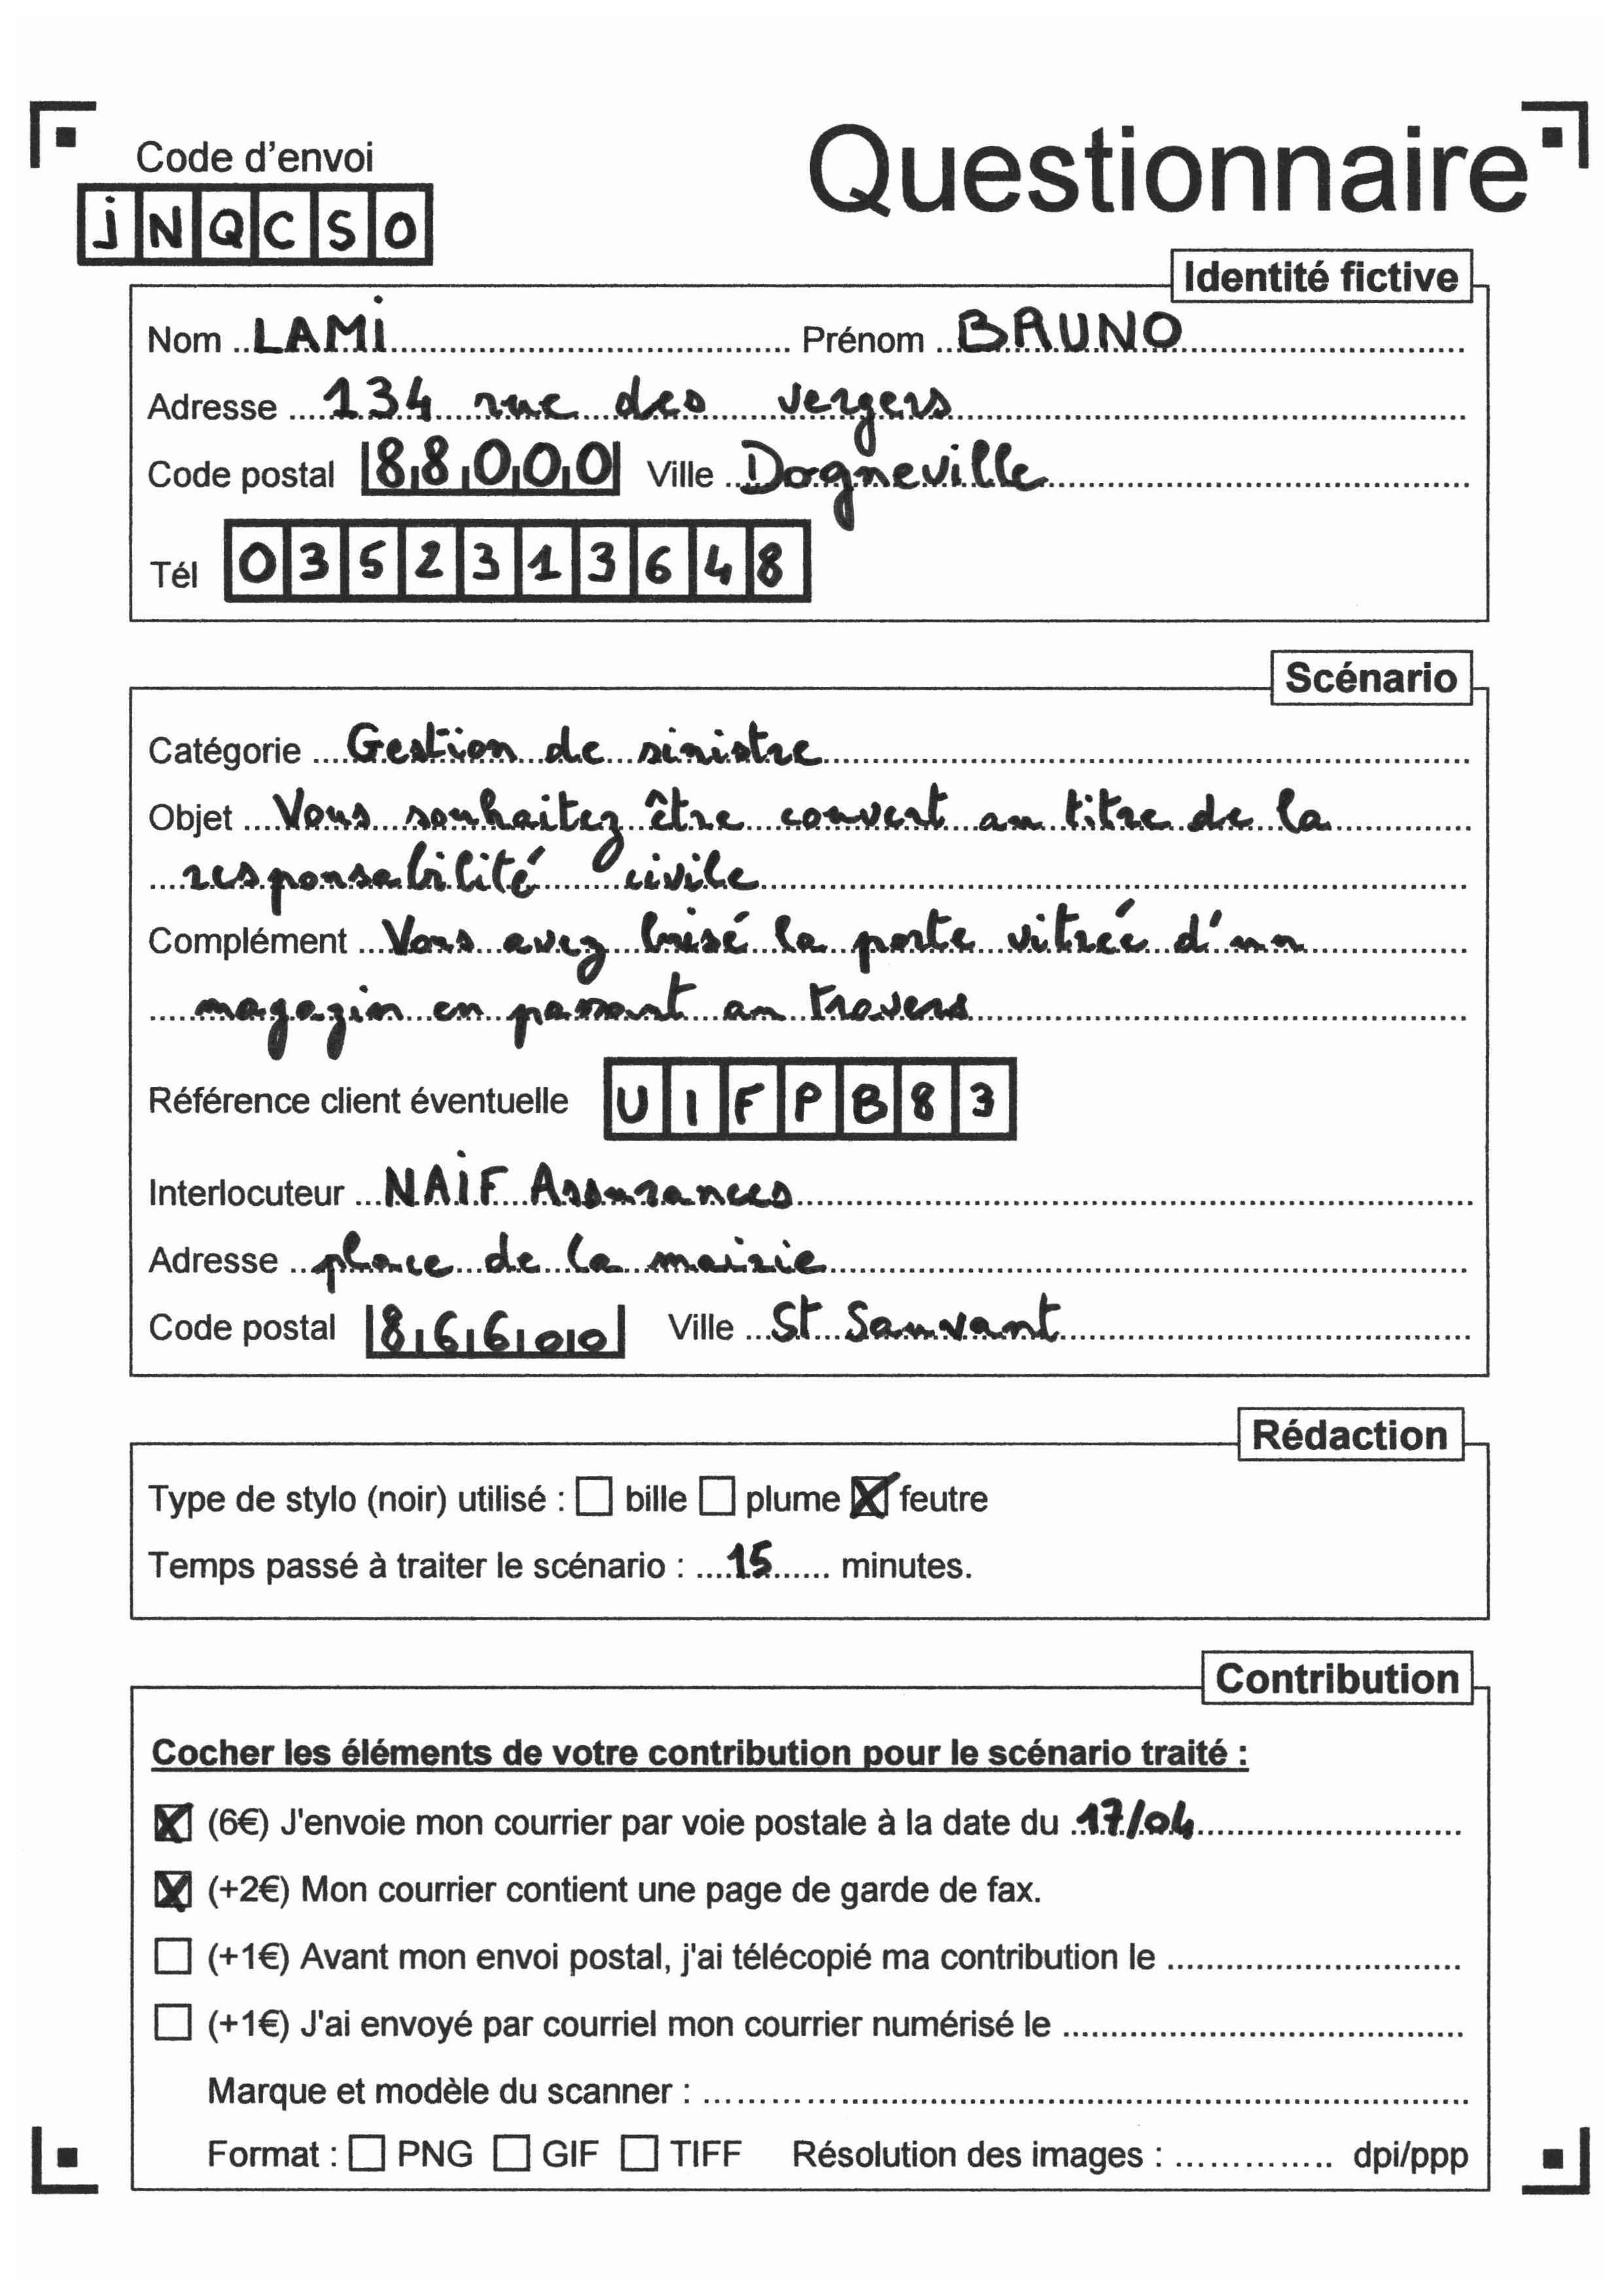 Code d'envoi
jNQCSO
Questionnaire
Identité fictive
Nom LAMi Prénom BRUNO
Adresse 134 rue des vergers
Code postal 88000 Ville Dogneville
Tél 0352313648
Scénario
Catégorie Gestion de sinistre
Objet Vous souhaitez être couvert au titre de la
responsabilité civile
Complément Vous avez brisé la porte vitrée d'un
magazin en passant au travers
Référence client éventuelle UIFPB83
Interlocuteur NAiF Assurances
Adresse place de la mairie
Code postal 86600 Ville St Sauvant
Rédaction
Type de stylo (noir) utilisé : ☐ bille ☐ plume ☒ feutre
Temps passé à traiter le scénario : 15 minutes.
Contribution
Cocher les éléments de votre contribution pour le scénario traité :
☒ (6€) J'envoie mon courrier par voie postale à la date du 17/04
☒ (+2€) Mon courrier contient une page de garde de fax.
☐ (+1€) Avant mon envoi postal, j'ai télécopié ma contribution le
☐ (+1€) J'ai envoyé par courriel mon courrier numérisé le
Marque et modèle du scanner :
Format : ☐ PNG ☐ GIF ☐ TIFF Résolution des images : dpi/ppp